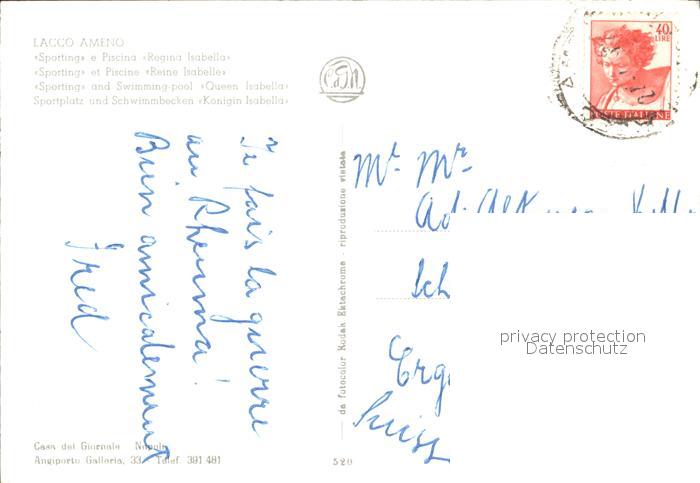 LACCO AMENO
«Sporting» e Piscina «Regina Isabella»
«Sporting» et Piscine «Reine Isabelle»
«Sporting» and Swimming-pool «Queen Isabella»
Sportplatz und Schwimmbecken «Konigin Isabella»
40
LIRE
POSTE ITALIANE
Je fais la guerre
au Rheuma!
Bien amicalement
Fred
da fotocolor Kodak Ektachrome - riproduzione vietata
Mr. Mr
Ad.
Sch
Suisse
privacy protection
Datenschutz
Casa del Giornale Napoli
Angiporto Galleria, 33 Telef. 391 481
520